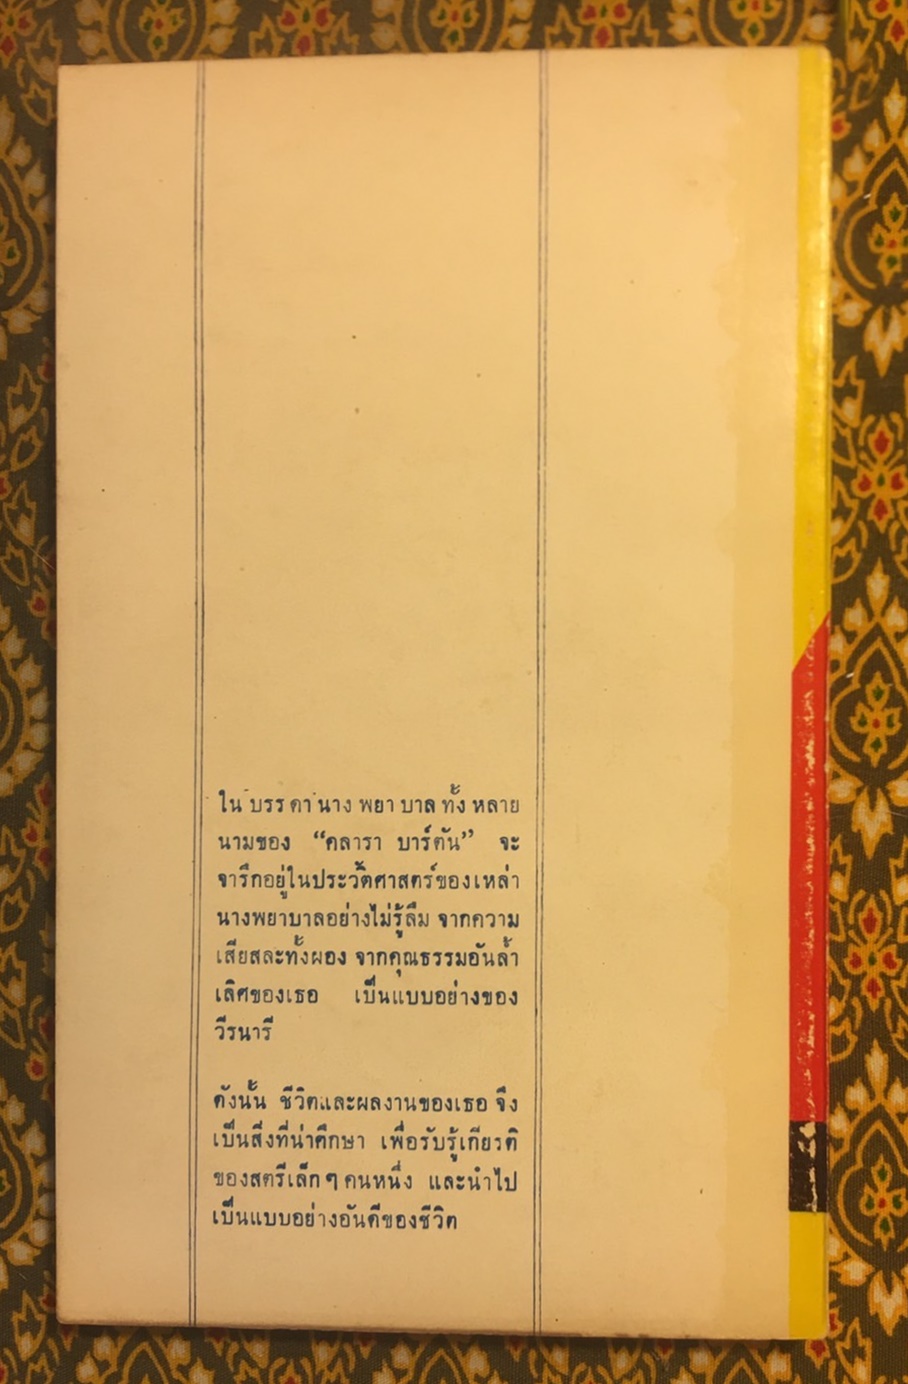 ในบรรดานางพยาบาลทั้งหลาย
นามของ “คลารา บาร์ตัน” จะ
จารึกอยู่ในประวัติศาสตร์ของเหล่า
นางพยาบาลอย่างไม่รู้ลืม จากความ
เสียสละทั้งผอง จากคุณธรรมอันล้ำ
เลิศของเธอ เป็นแบบอย่างของ
วีรนารี
ดังนั้น ชีวิตและผลงานของเธอ จึง
เป็นสิ่งที่น่าศึกษา เพื่อรับรู้เกียรติ
ของสตรีเล็กๆ คนหนึ่ง และนำไป
เป็นแบบอย่างอันดีของชีวิต